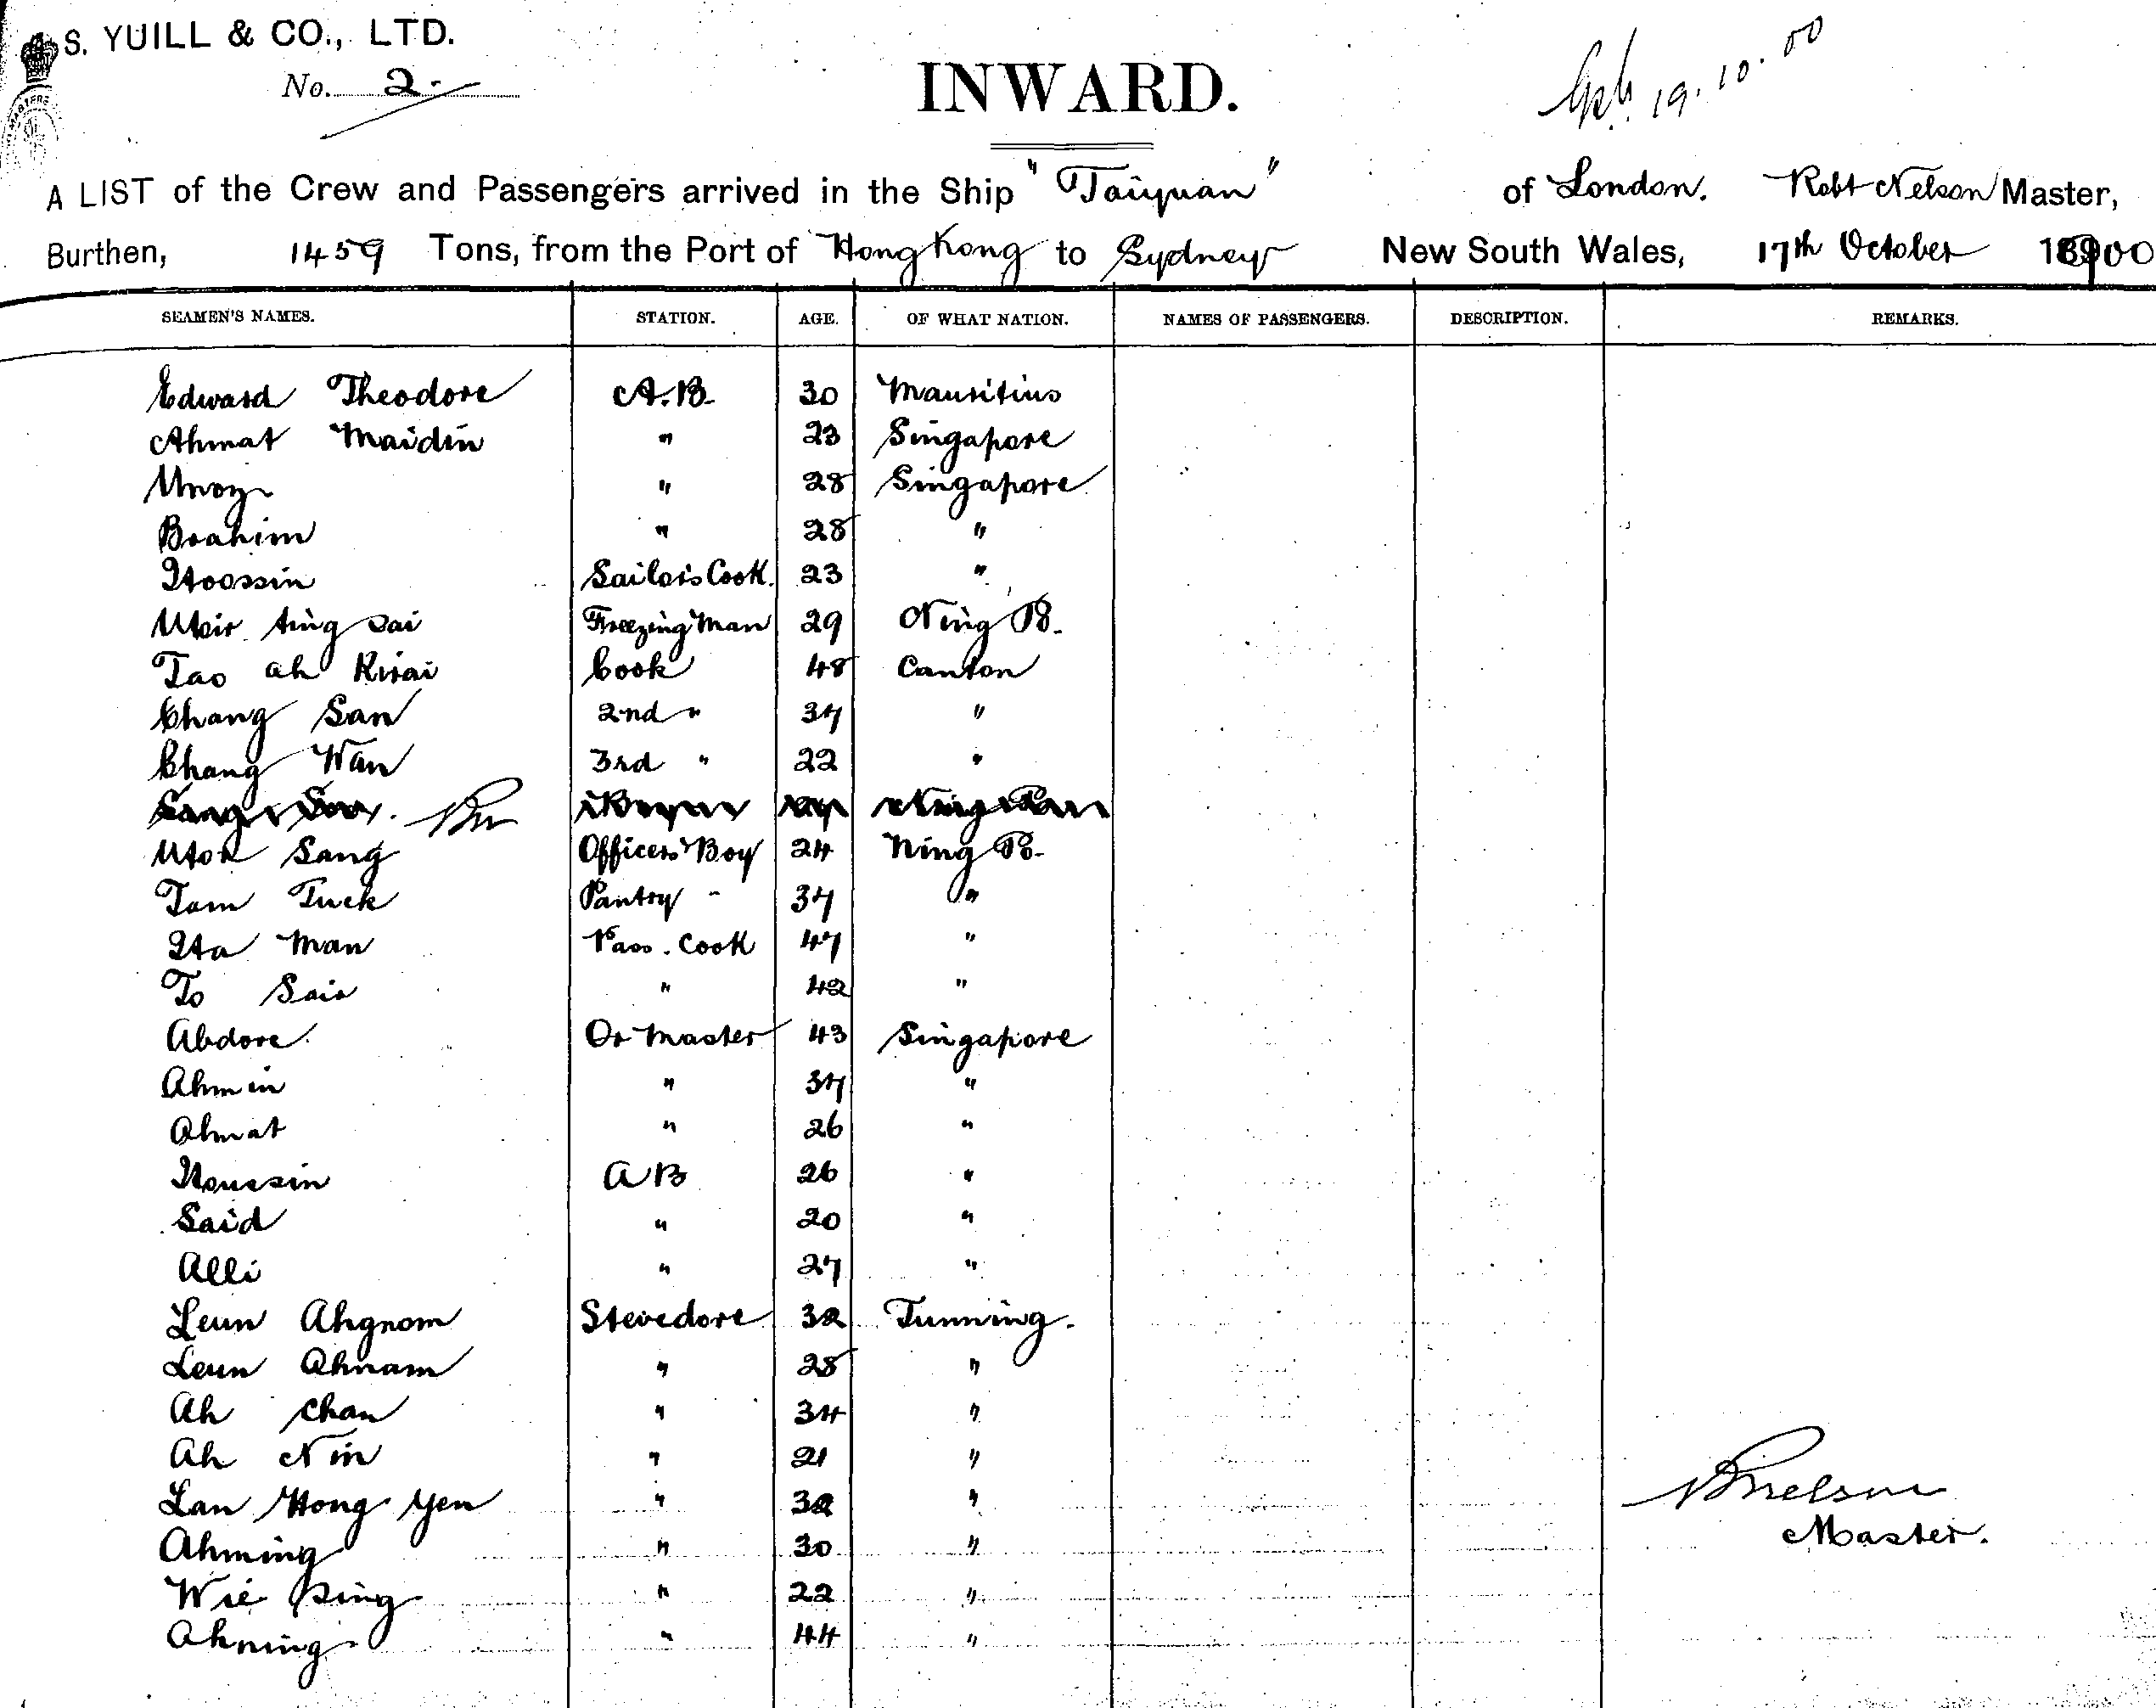 S. YUILL & CO., LTD.
No. 2.
INWARD.
19.10.00
A LIST of the Crew and Passengers arrived in the Ship "Taiyuan" of London. Robt Nelson Master,
Burthen, 1459 Tons, from the Port of Hong Kong to Sydney New South Wales, 17th October 1900
SEAMEN'S NAMES. STATION. AGE. OF WHAT NATION. NAMES OF PASSENGERS. DESCRIPTION. REMARKS.
Edward Theodore A.B. 30 Mauritius
Ahmat Maidin " 23 Singapore
" 28 Singapore
Brahim " 28 "
Hoossin Sailors Cook. 23 "
ting sai Freezing Man 29 Ning Po.
Tao ah Kwai Cook 48 Canton
Chang San 2nd " 37 "
Chang Wan 3rd " 22 "
Sang Officers Boy 24 Ning Po.
Tam Tuck Pantry " 37 "
Ha Man Pass. Cook 47 "
To Sair " 42 "
Abdore. Qr Master 43 Singapore
Ahmin " 37 "
Ahmat " 26 "
Houssin AB 26 "
Said " 20 "
Alli " 27 "
Leun Ahgnom Stevedore 32 Tunning.
Leun Ahnam " 28 "
Ah Chan " 34 "
Ah Nin " 21 "
Lan Hong Yen " 32 "
Ahming " 30 "
Wie Sing " 22 "
Ahning " 44 "
RNelson
Master.